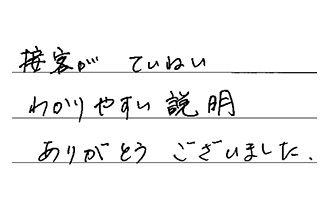 接客が ていねい
わかりやすい 説明
ありがとう ございました.